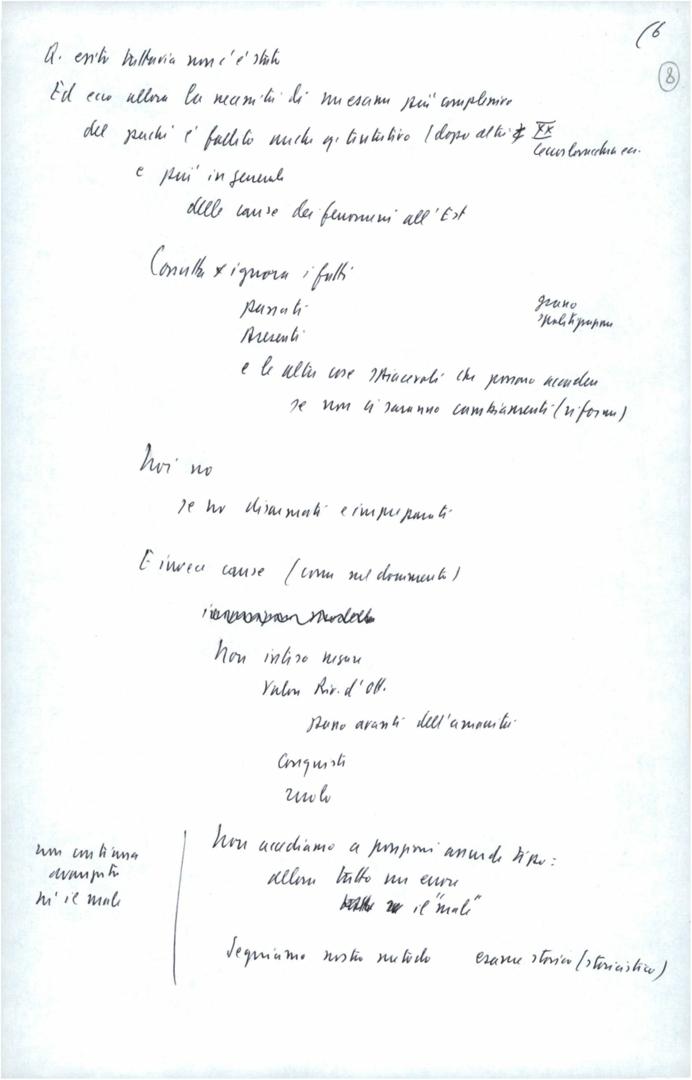 (6
8
Q. esito tuttavia non c'è stato
Ed ecco allora la necessità di un esame più complessivo
del perché è fallito anche q. tentativo (dopo altri XX
Cecoslovacchia ecc.
e più in generale
delle cause dei fenomeni all'Est
ignora i fatti
passati
presenti
grano
e le altre cose spiacevoli che possono accadere
se non ci saranno cambiamenti (riforme)
Noi no
se no disarmati e impreparati
E invece cause (come nel documento)
Non inteso negare
valore Riv. d'Ott.
passo avanti dell'umanità
conquiste
ruolo
Non accediamo a posizioni assurde tipo:
allora tutto un errore
il "male"
non continua
né il male
Seguiamo nostro metodo esame storico (storicistico)